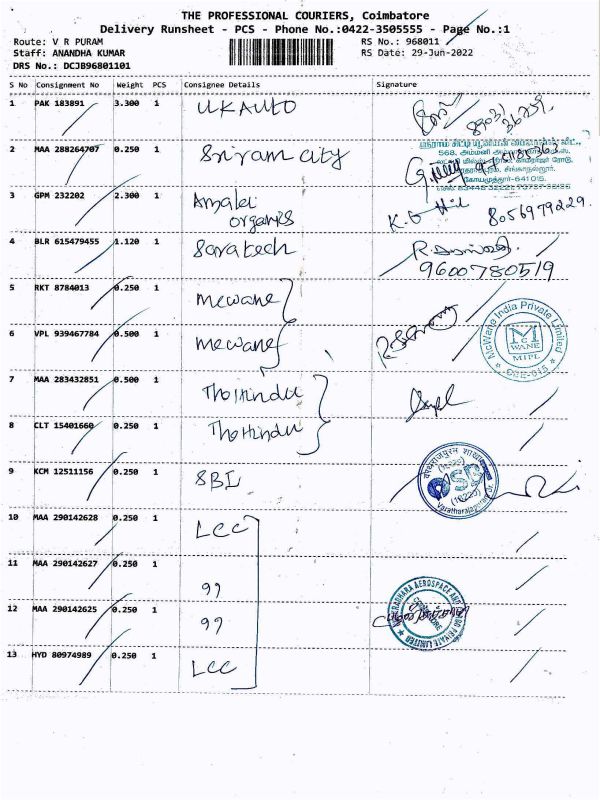 THE PROFESSIONAL COURIERS, Coimbatore
Delivery Runsheet - PCS - Phone No.:0422-3505555 - Page No.:1
Route: V R PURAM RS No.: 968011
Staff: ANANDHA KUMAR RS Date: 29-Jun-2022
DRS No.: DCJB96801101
S No Consignment No Weight PCS Consignee Details Signature
1 PAK 183891 3.300 1 UKAUTO
2 MAA 288264707 0.250 1 Sriram city
568,
3 GPM 232202 2.300 1 Amalei organics 8056979229.
4 BLR 615479455 1.120 1 Saratech
9600780519
5 RKT 8784013 0.250 1 mcwane
6 VPL 939467784 0.500 1 mcwane
McWane India Private Limited
McWANE
MIPL
7 MAA 283432851 0.500 1 The Hindu
8 CLT 15401660 0.250 1 The Hindu
9 KCM 12511156 0.250 1 SBI
10 MAA 290142628 0.250 1 LCC
11 MAA 290142627 0.250 1 99
12 MAA 290142625 0.250 1 99
13 HYD 80974989 0.250 1 LCC